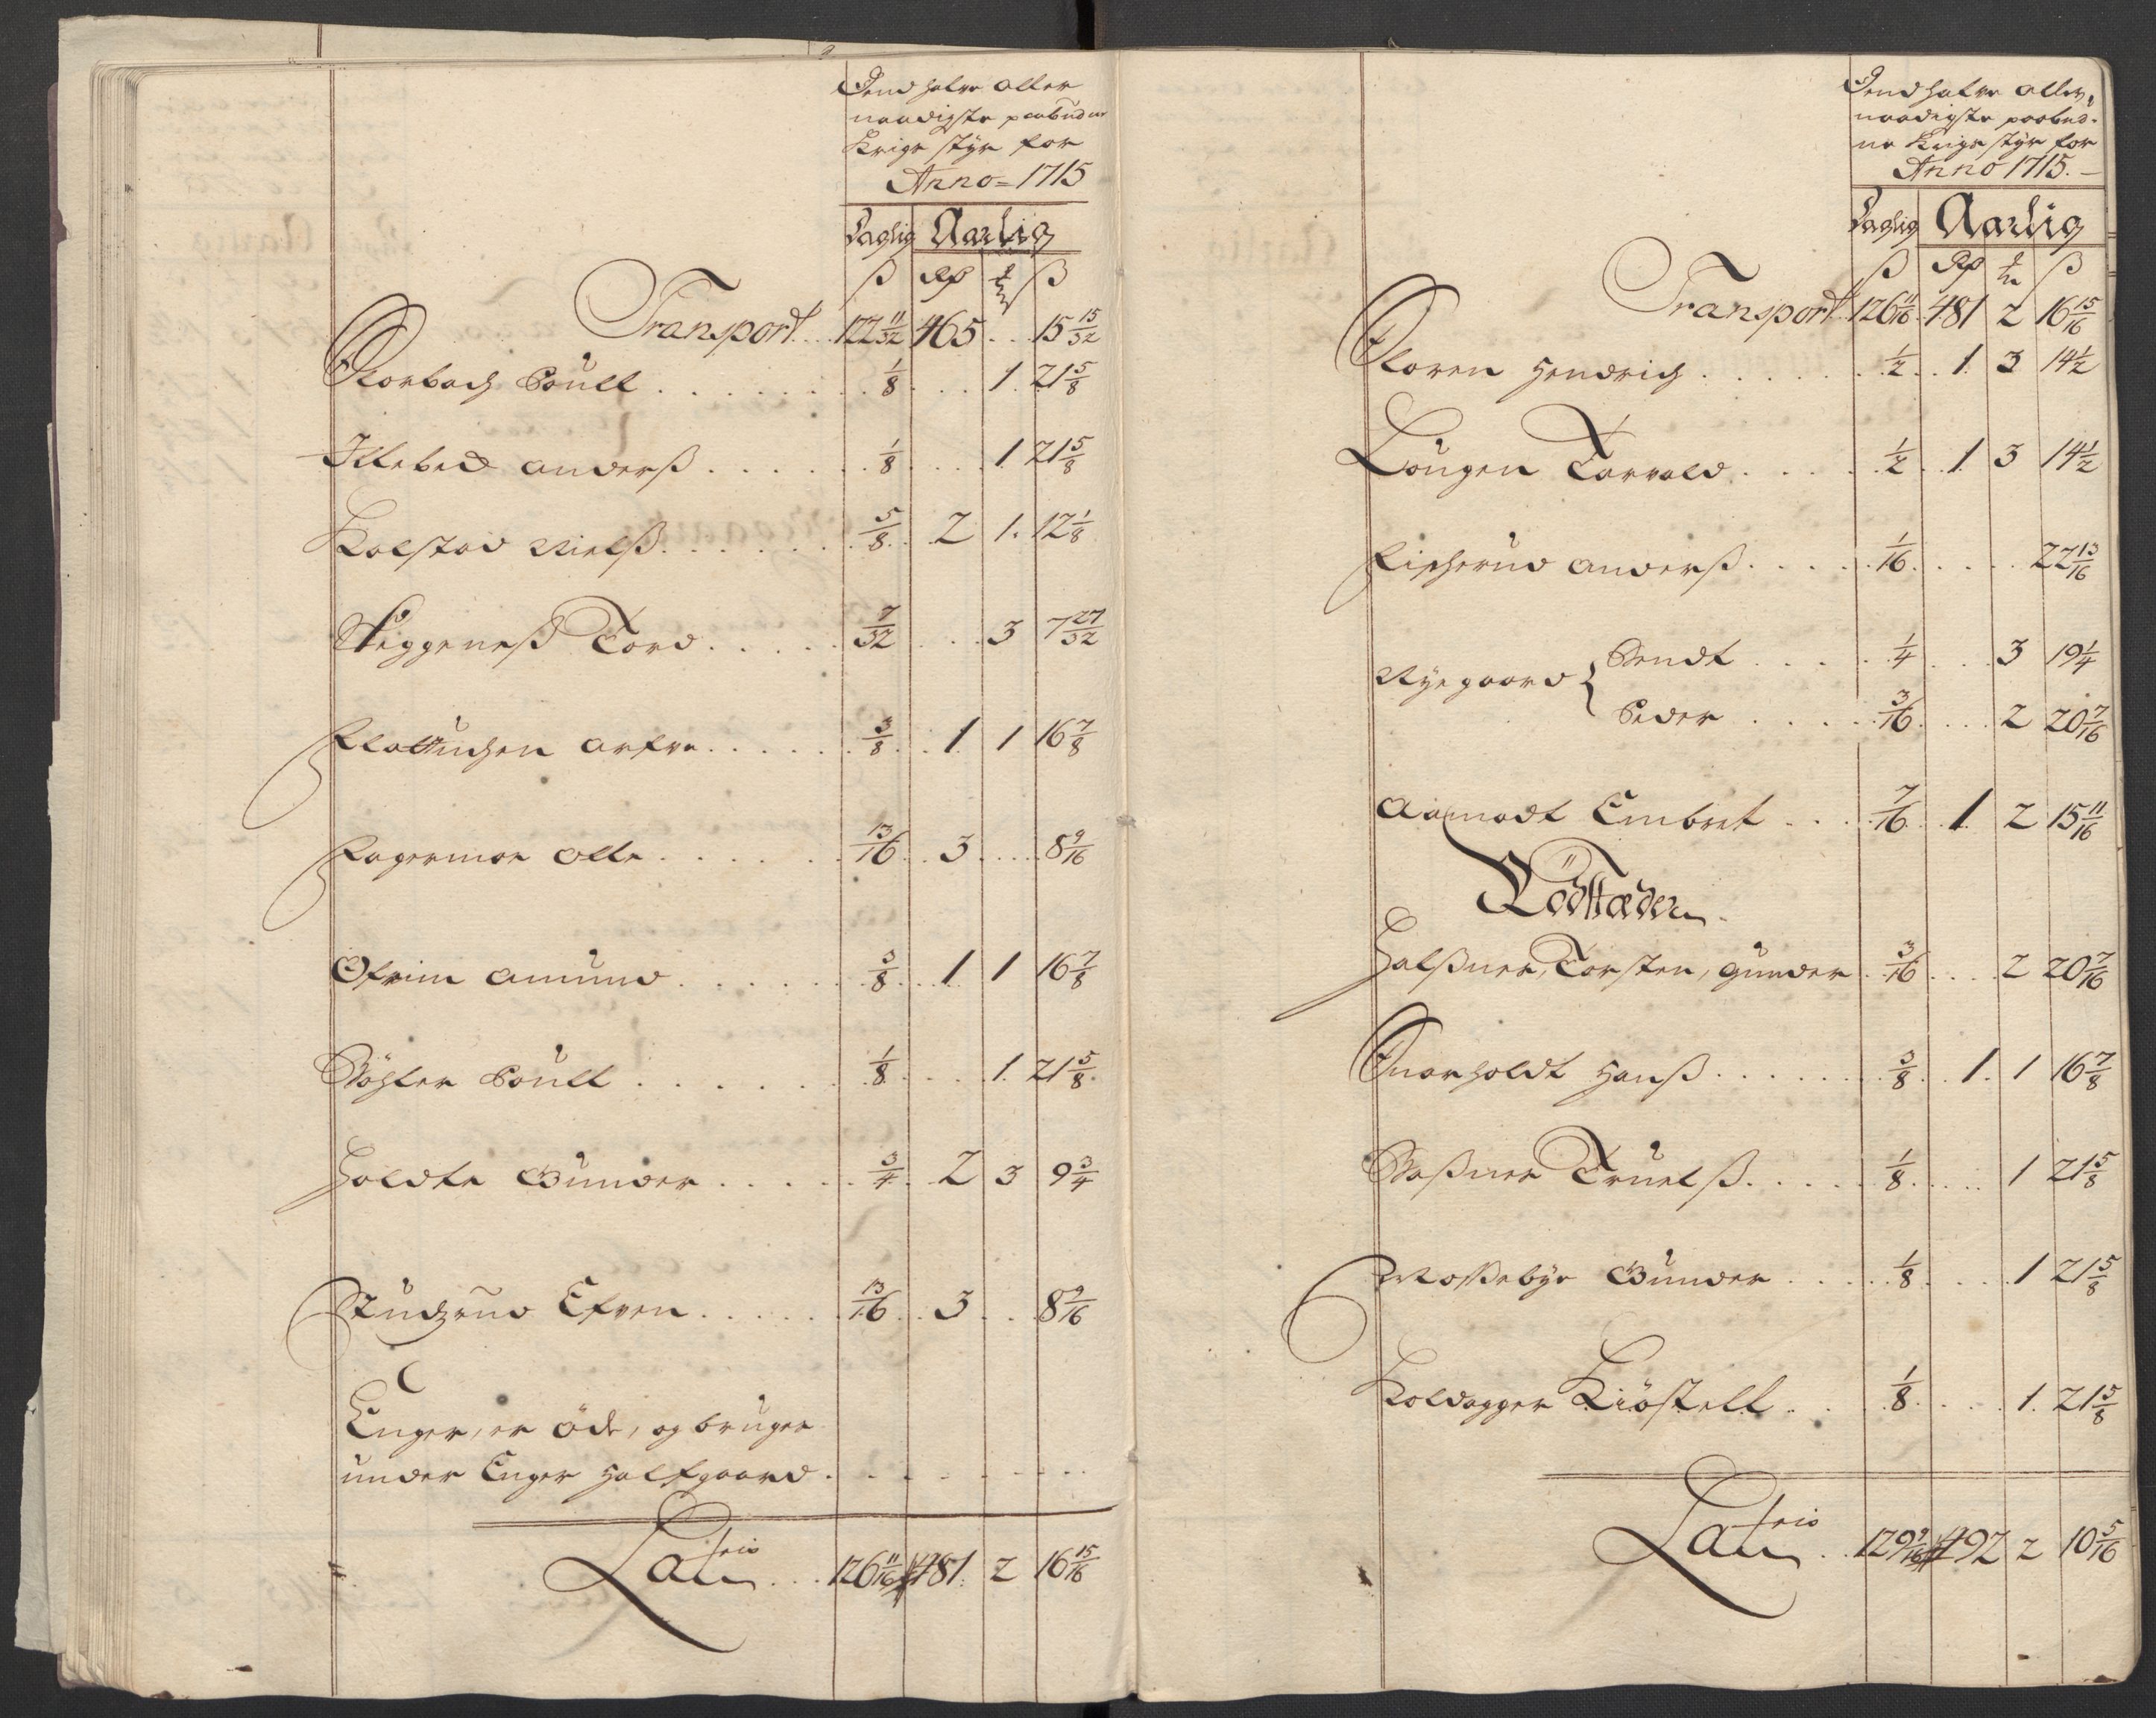 Dend halve aller
naadigste paabudne
Krigs styr for
Anno = 1715
Daglig Aarlig
ß Rd ß
Transport . . 122 11/32 465 . . 15 15/32
Korbach Poull . . . 1/8 . . 1 21 5/8
Illebech anderß . . . 1/8 . . 1 21 5/8
Kolstad Nielß . . . 5/8 2 1 12 1/8
Tord . . . 7/32 . . 3 7 27/32
arfve . . . 3/8 1 1 16 7/8
Fagermoe Olle . . . 13/16 3 . . 8 9/16
Amund . . . 3/8 1 1 16 7/8
Bøhler Poull . . . 1/8 . . 1 21 5/8
Holdte Gunder . . . 3/4 2 3 9 3/4
Studzrud Efven . . . 13/16 3 . . 8 9/16
Enger, er öde, og bruges
under Enger halfgaard . . .
Lateris . . 126 11/16 481 2 16 15/16
Dend halve aller
naadigste paabud-
ne Krigs styr for
Anno 1715.
Daglig Aarlig
ß Rd ß
Transport 126 11/16 481 2 16 15/16
Floren Hendrich . . . 1/2 1 3 14 1/2
Lougen Torvald . . . 1/2 1 3 14 1/2
Fischerud anderß . . . 1/16 . . . 22 13/16
Nÿegaard { Bendt . . . 1/4 . . 3 19 1/4
Peder . . . 3/16 . . 2 20 7/16
Aamodt Embret . . . 7/16 1 2 15 11/16
Rödstæder
Halßner, Torsten, gunder . 3/16 . . 2 20 7/16
Snarholdt Hanß . . . 3/8 1 1 16 7/8
Baßner Truelß . . . 1/8 . . 1 21 5/8
Moßebÿe Gunder . . . 1/8 . . 1 21 5/8
Koldagger Kiöstell . . . 1/8 . . 1 21 5/8
Lateris . . 129 9/16 492 2 10 5/16